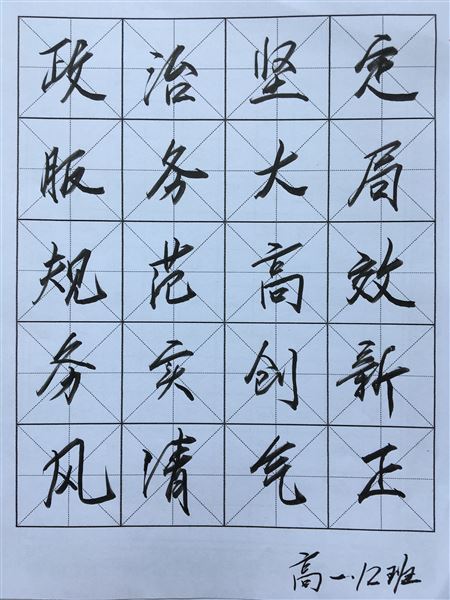 政治坚定
服务大局
规范高效
务实创新
风清气正
高一.12班